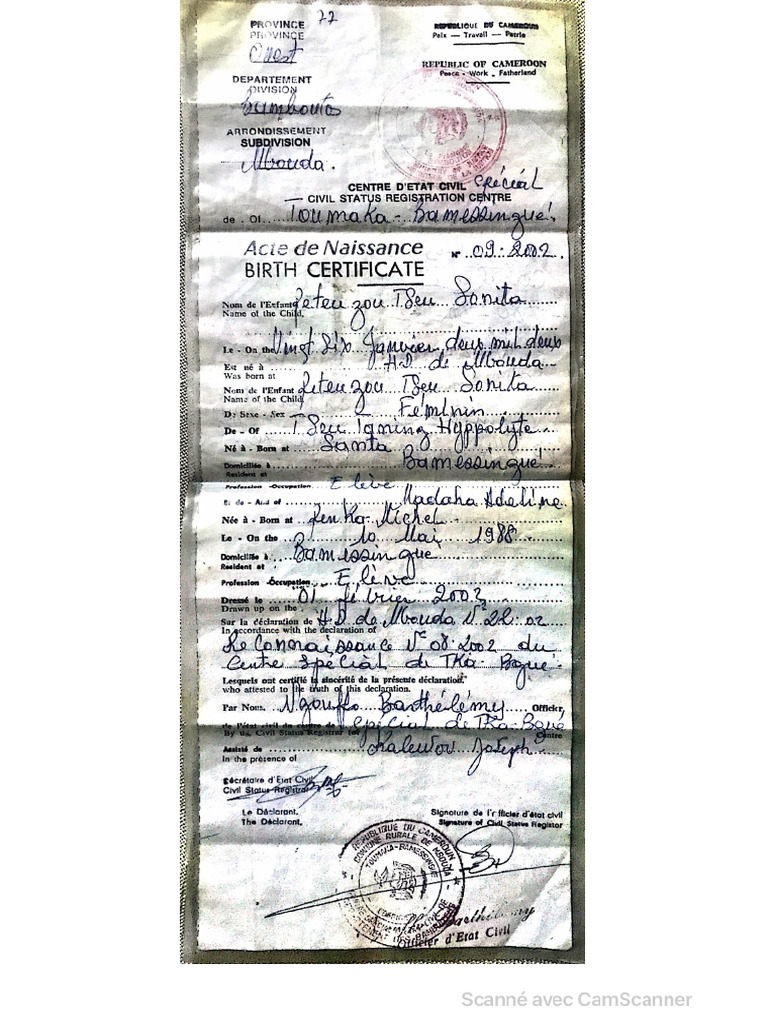 PROVINCE
PROVINCE
Ouest
DEPARTEMENT
DIVISION
Bamboutos
ARRONDISSEMENT
SUBDIVISION
Mbouda.
REPUBLIQUE DU CAMEROUN
Paix — Travail — Patrie
REPUBLIC OF CAMEROON
Peace - Work - Fatherland
CENTRE D'ETAT CIVIL Spécial
— CIVIL STATUS REGISTRATION CENTRE
de - Of Toumaka - Bamessingué.
Acte de Naissance N° 09-2002
BIRTH CERTIFICATE
Nom de l'Enfant Tseu Sonita
Name of the Child
Le - On the Vingt Six Janvier deux mil deux
Est né à H.D de Mbouda
Was born at
Nom de l'Enfant Tseu Sonita
Name of the Child
De Sexe - Sex Féminin
De - Of Tseu Hyppolyte
Né à - Born at Santa
Domiciliée à Bamessingué
Resident at
Profession - Occupation Elève
Et de - And of Madaha Adeline
Née à - Born at Michel
Le - On the 10 Mai 1988
Domiciliée à Bamessingué
Resident at
Profession - Occupation Elève
Dressé le 01 février 2002
Drawn up on the
Sur la déclaration de H.D. de Mbouda N° 22.02
In accordance with the declaration of
Reconnaissance N° 08.2002 du
Centre Spécial de TKa-Bgué.
Lesquels ont certifié la sincérité de la présente déclaration.
who attested to the truth of this declaration.
Par Nous, Ngouffo Barthélémy Officier,
de l'état civil du centre de Spécial de TKa-Bgué
By us, Civil Status Registrar for Centre
Assisté de Joseph
In the presence of
Sécrétaire d'Etat Civil
Civil Status Registrar
Le Déclarant,
The Déclarant,
Signature de l'officier d'état civil
Signature of Civil Status Registor
REPUBLIQUE DU CAMEROUN
COMMUNE RURALE DE MBOUDA
TOUMAKA-BAMESSINGUE
Barthélemy
Officier d'Etat Civil
Scanné avec CamScanner